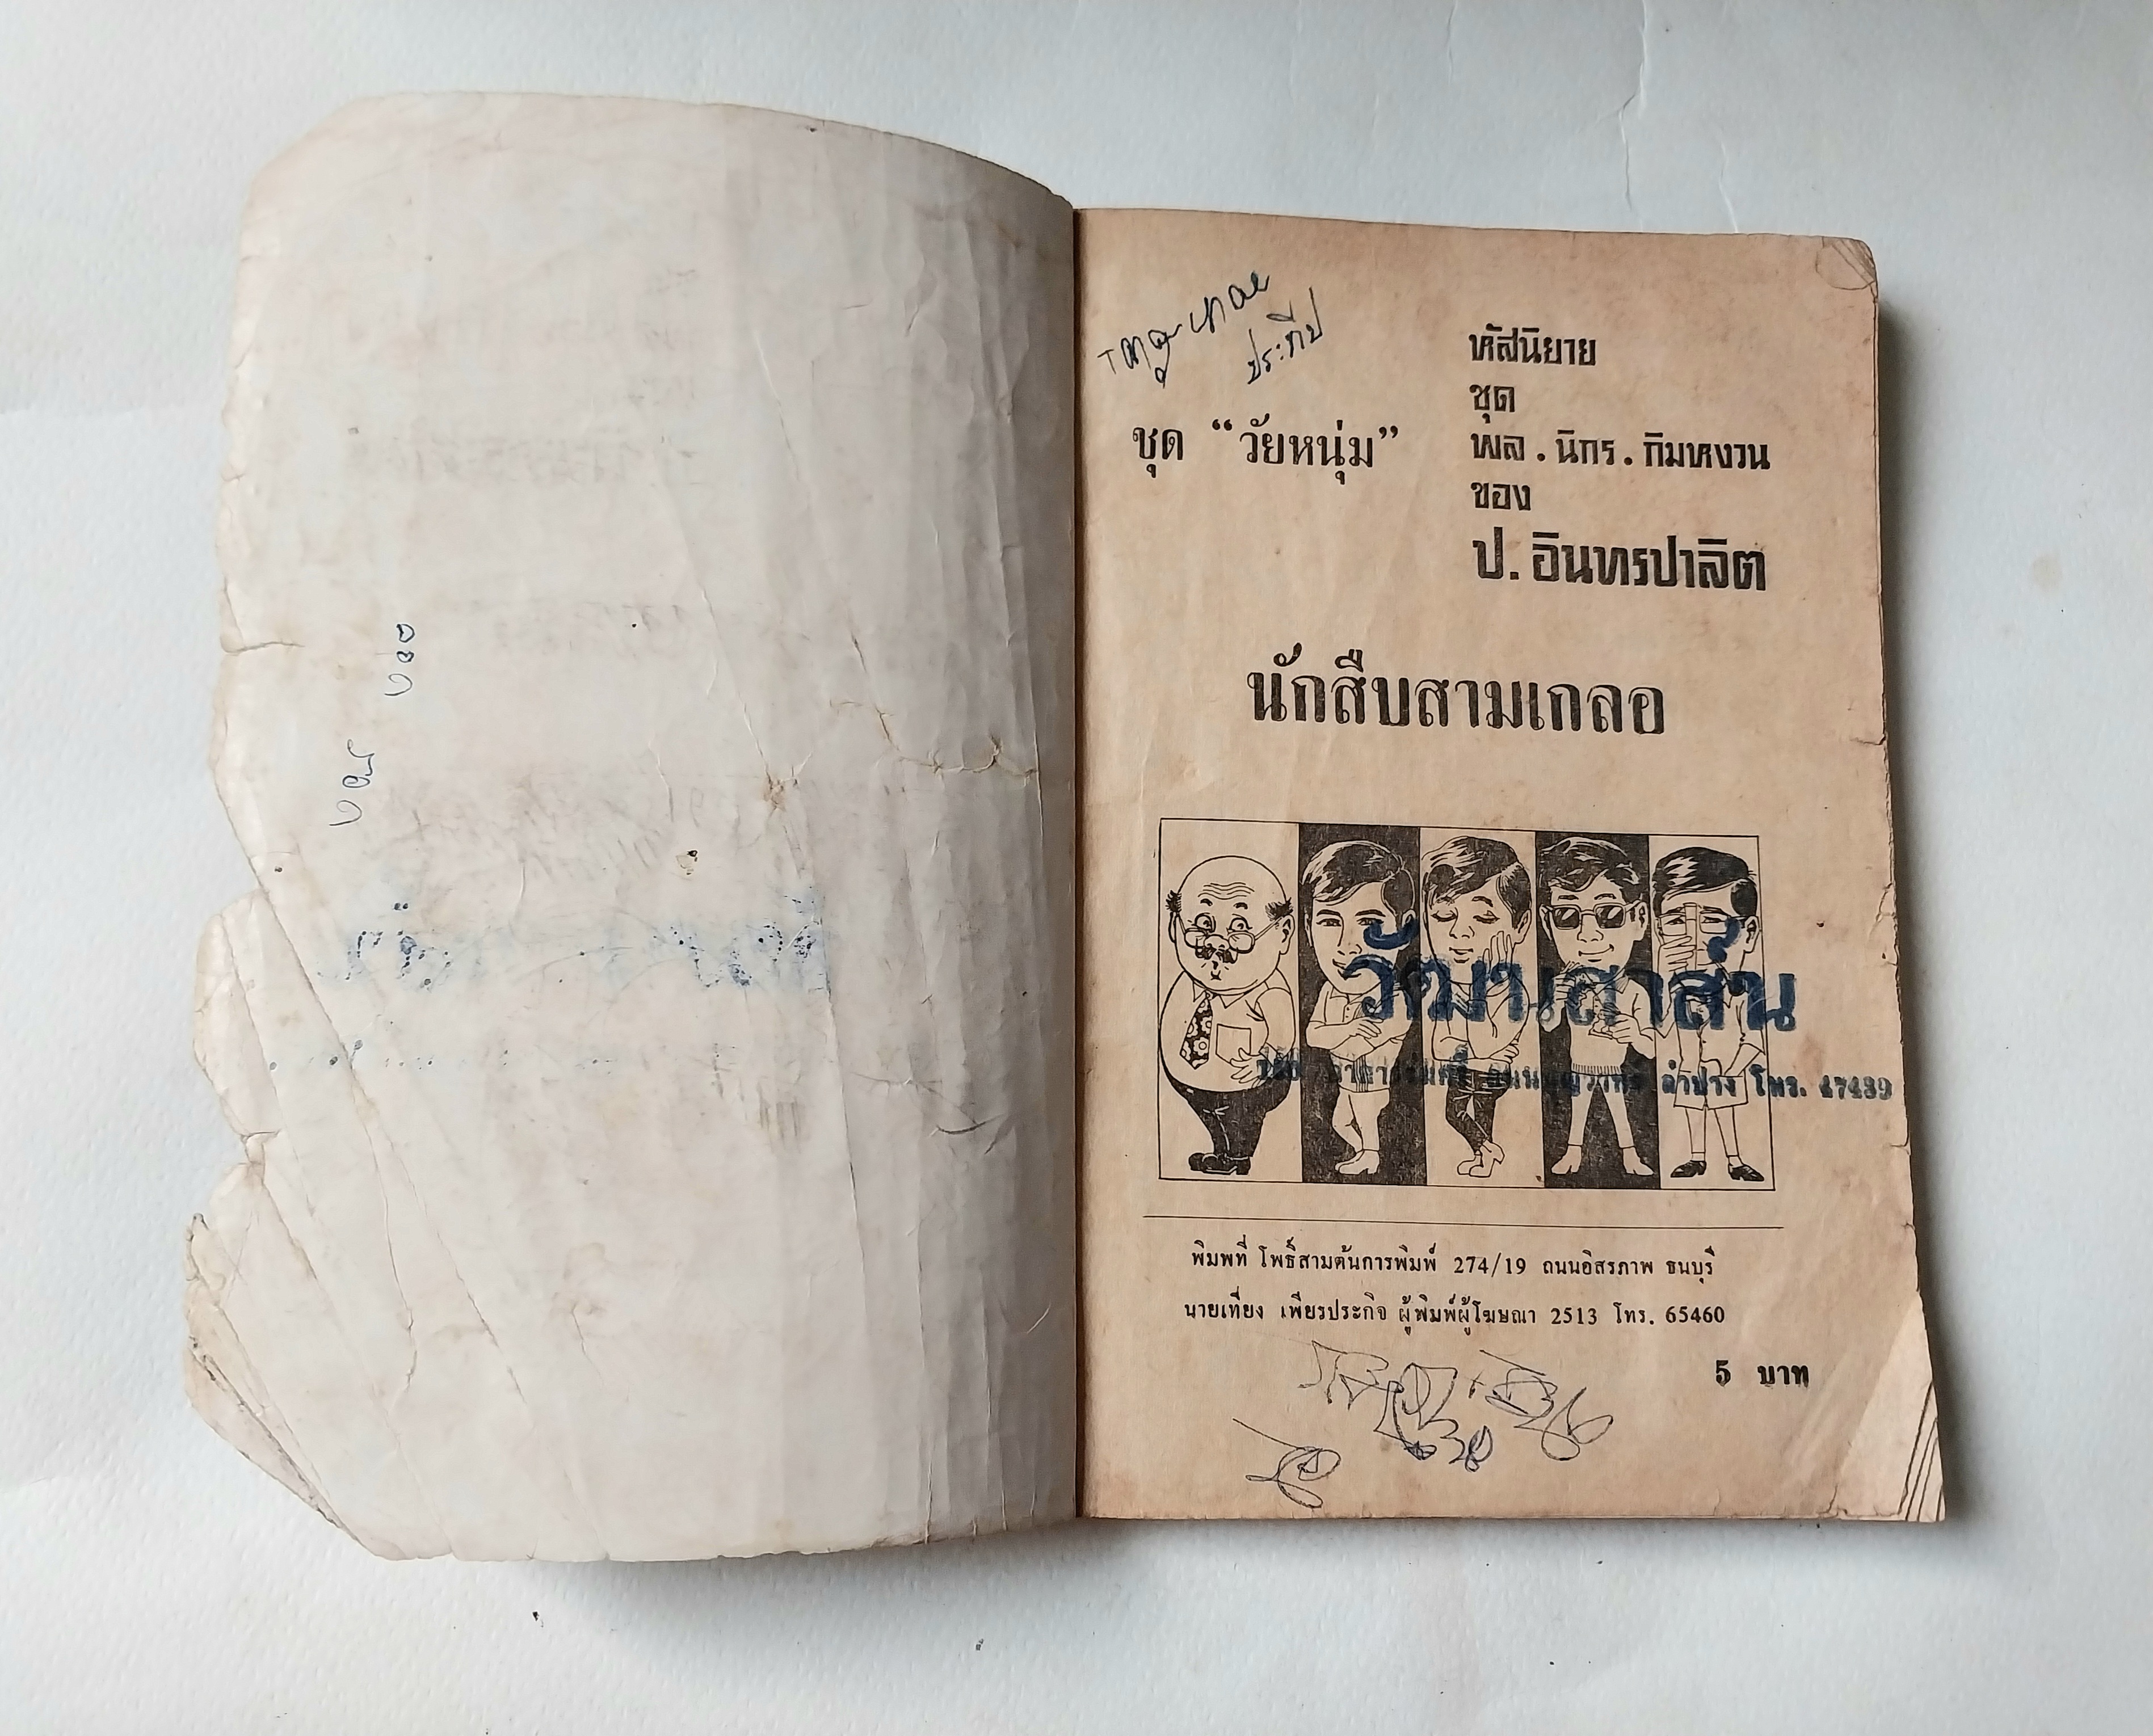 ประทีป
หัสนิยาย
ชุด
พล . นิกร . กิมหงวน
ของ
ป. อินทรปาลิต
ชุด “วัยหนุ่ม”
นักสืบสามเกลอ
วัฒนสาส์น
ลำปาง โทร. 47439
พิมพที่ โพธิ์สามต้นการพิมพ์ 274/19 ถนนอิสรภาพ ธนบุรี
นายเที่ยง เพียรประกิจ ผู้พิมพ์ผู้โฆษณา 2513 โทร. 65460
5 บาท